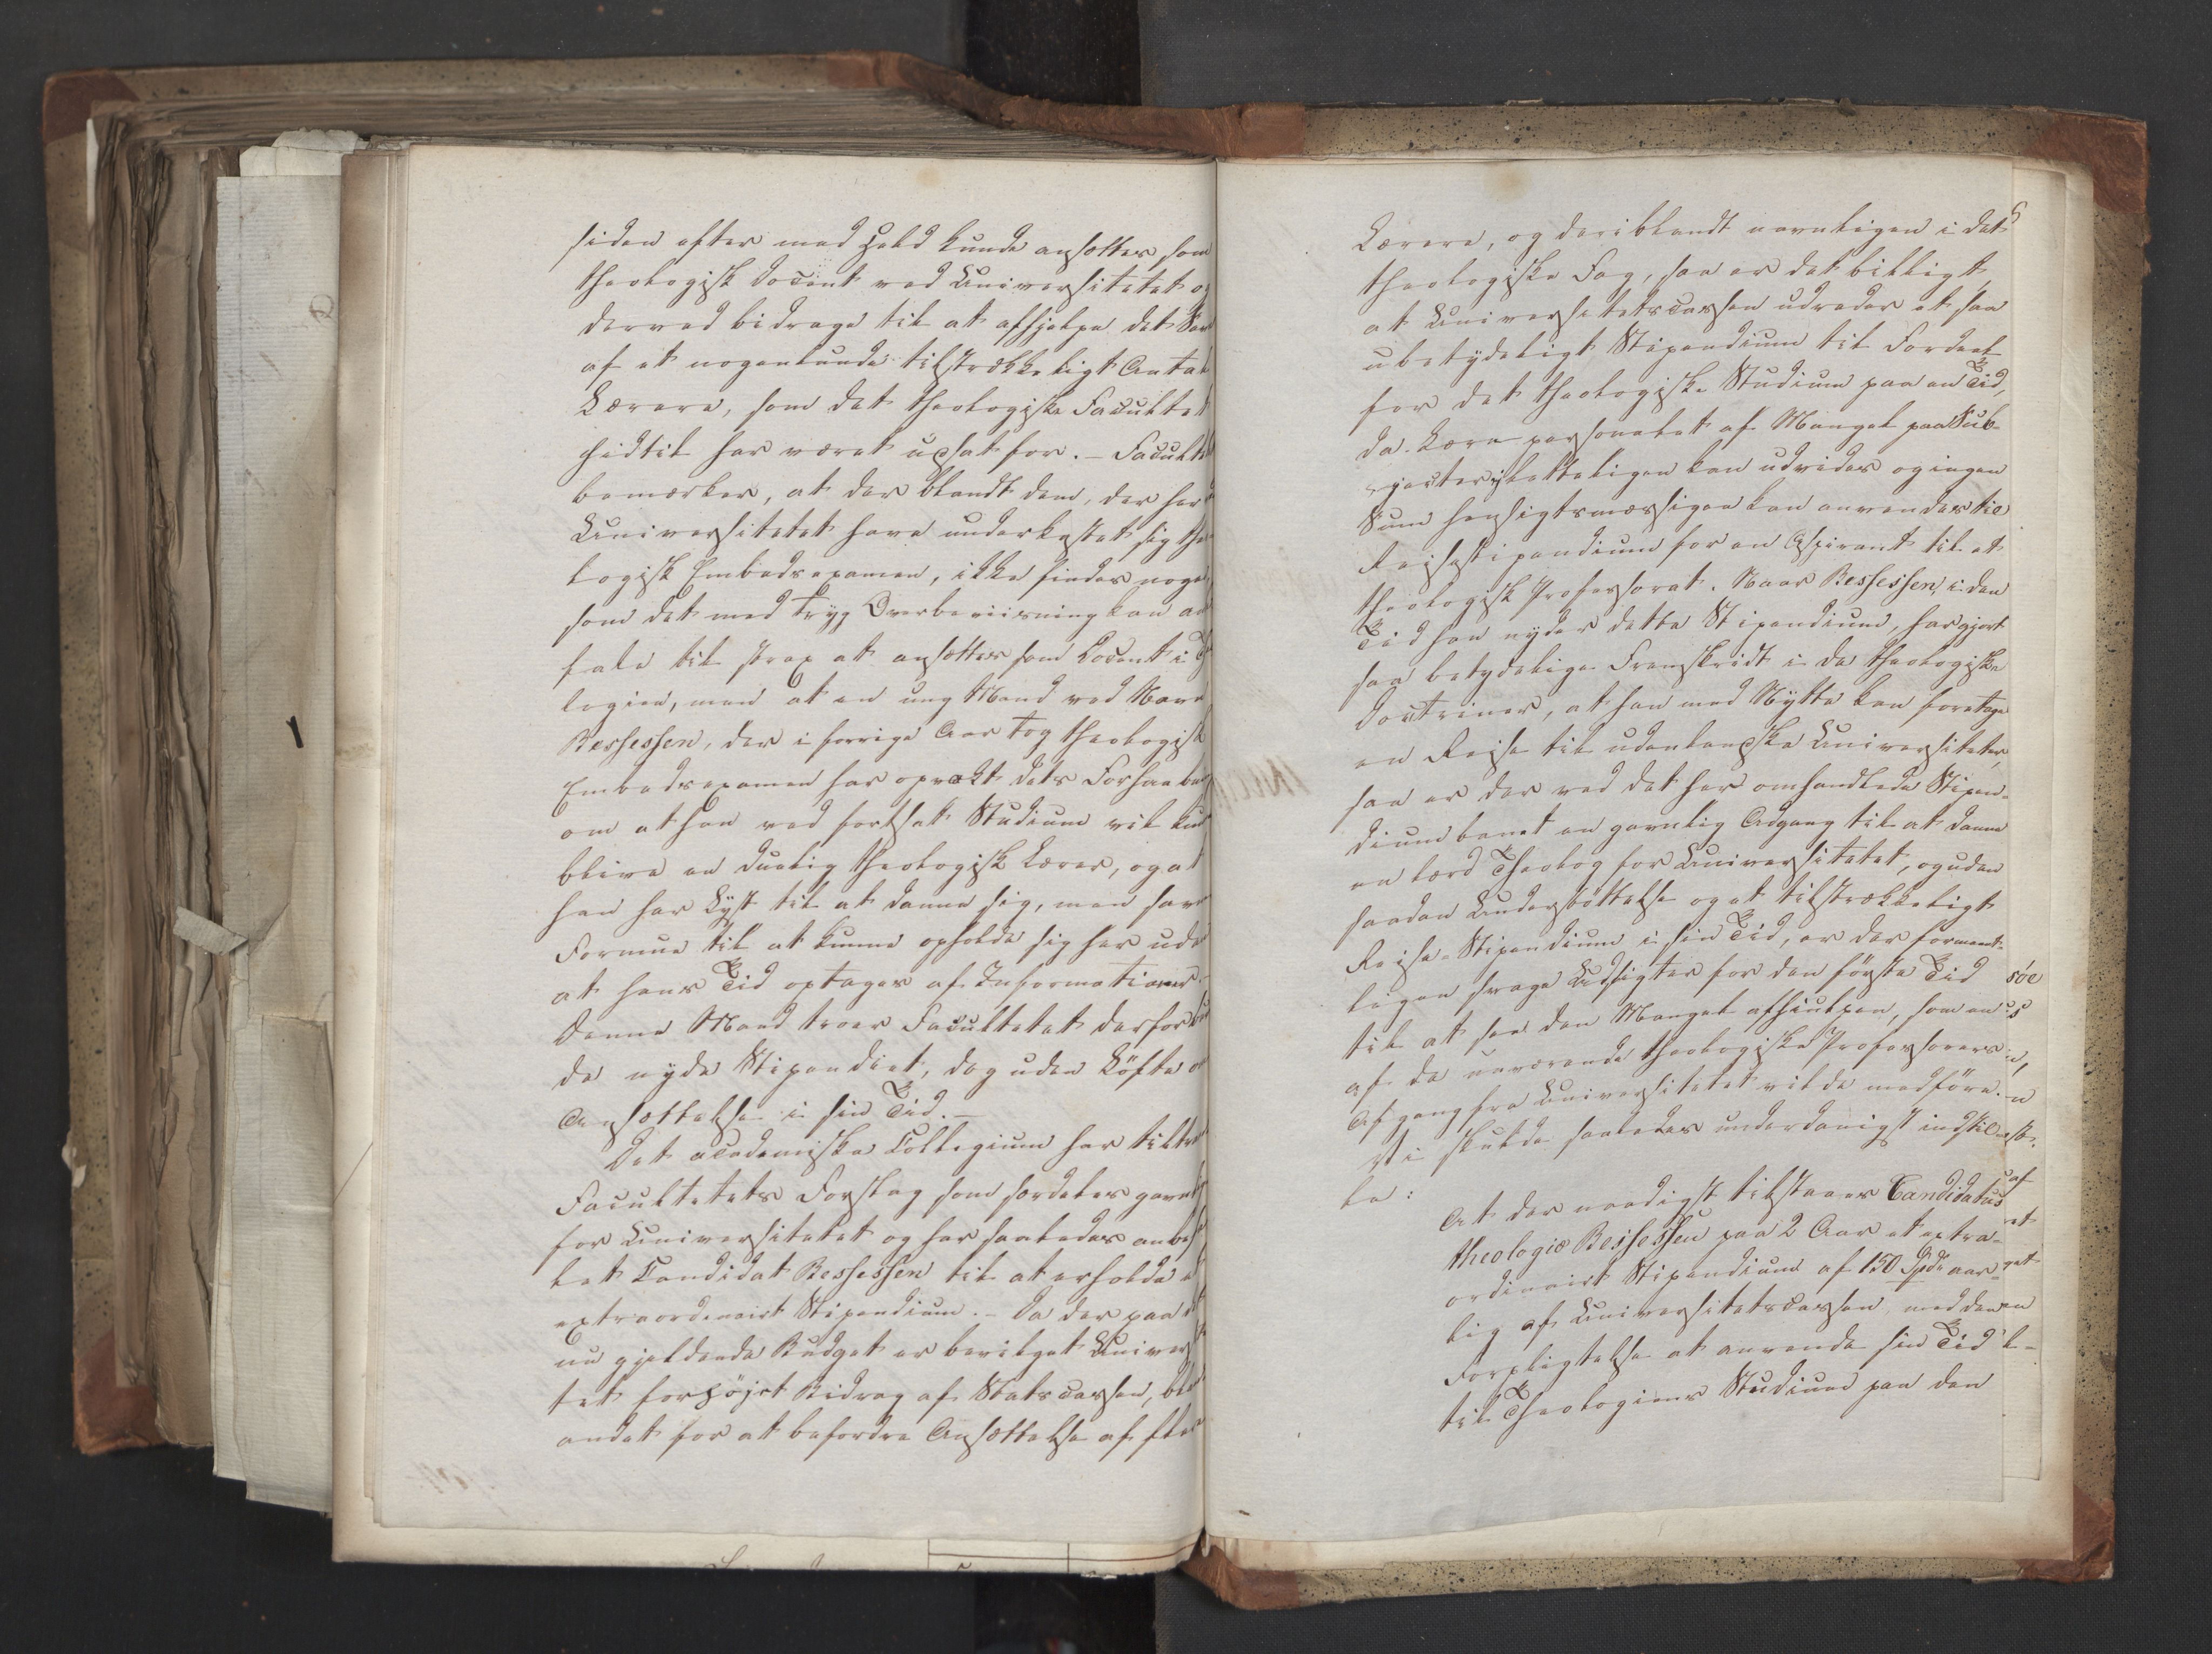 siden efter med Held kunde ansættes som
theologisk Docent ved Universitetet og
derved bidrage til at afhjelpe det Savn
af et nogenlunde tilstrækkeligt Antal
Lærere, som det theologiske Facultet
hidtil har været udsat for. – Facultet
bemærker, at der blandt dem, der her
Universitetet have underkastet sig theo
logisk Embedsexamen, ikke findes noge
som det med tryg Overbeviisning kan an
fale til strax at ansættes som Docent i Th
logien, men at en ung Mand ved Navn
Bessesen, der i forrige Aar tog theologisk
Embedsexamen har opvakt dets Forhaabn
om at han ved fortsat Studium vil kun
blive en duelig theologisk Lærer, og at
han har Lyst til at danne sig, men savn
Formue til at kunne opholde sig her uden
at hans Tid optages af Informationer.
Denne Mand troer Facultetet derfor bur
de nyde Stipendiet, dog uden Løfte om
Ansættelse i sin Tid. –
Det academiske Collegium har tiltraadt
Facultetets Forslag som særdeles gavnligt
for Universitetet og har saaledes anbef
let Candidat Bessesen til at erholde et
extraordinairt Stipendium. – Da der paa det
nu gjeldende Budget er bevilget Univers
tet forhøjet Bidrag af Statscassen, bla
andet for at befordre Ansættelse af flere
Lærere, og deriblandt navnligen i det
theologiske Fag, saa er det billigt,
at Universitetscassen udreder et saa
ubetydeligt Stipendium til Fordeel
for det theologiske Studium paa en Tid,
da Lærepersonalet af Mangel paa Sub-
jecter ej lettelligen kan udvides og ingen
Sum hensigtsmæssigen kan anvendes til
Rejsestipendium for en Aspirant til et
theologisk Professorat. Naar Bessesen, i den
Tid han nyder dette Stipendium, har gjort
saa betydelige Fremskridt i de theologiske
Doctriner, at han med Nytte kan foretage
en Rejse til udenlandske Universiteter,
saa er der ved det her omhandlede Stipen-
dium banet en gavnlig Adgang til at danne
en lærd Theolog for Universitetet, og uden
saadan Understøttelse og et tilstrækkeligt
Rejse-Stipendium i sin Tid, er der formeent-
ligen svage Udsigter for den første Tid
til at see den Mangel afhiulpen, som en
af de nuværende theologiske Professorers
Afgang fra Universitetet vilde medføre.
Vi skulde saaledes underdanigst indstil-
le:
At der naadigst tilstaaes Candidatus
theologiæ Bessesen paa 2 Aar et extra-
ordinairt Stipendium af 150 Spd. aar-
lig af Universitetscassen, med den
Forpligtelse at anvende sin Tid
til Theologiens Studium paa den